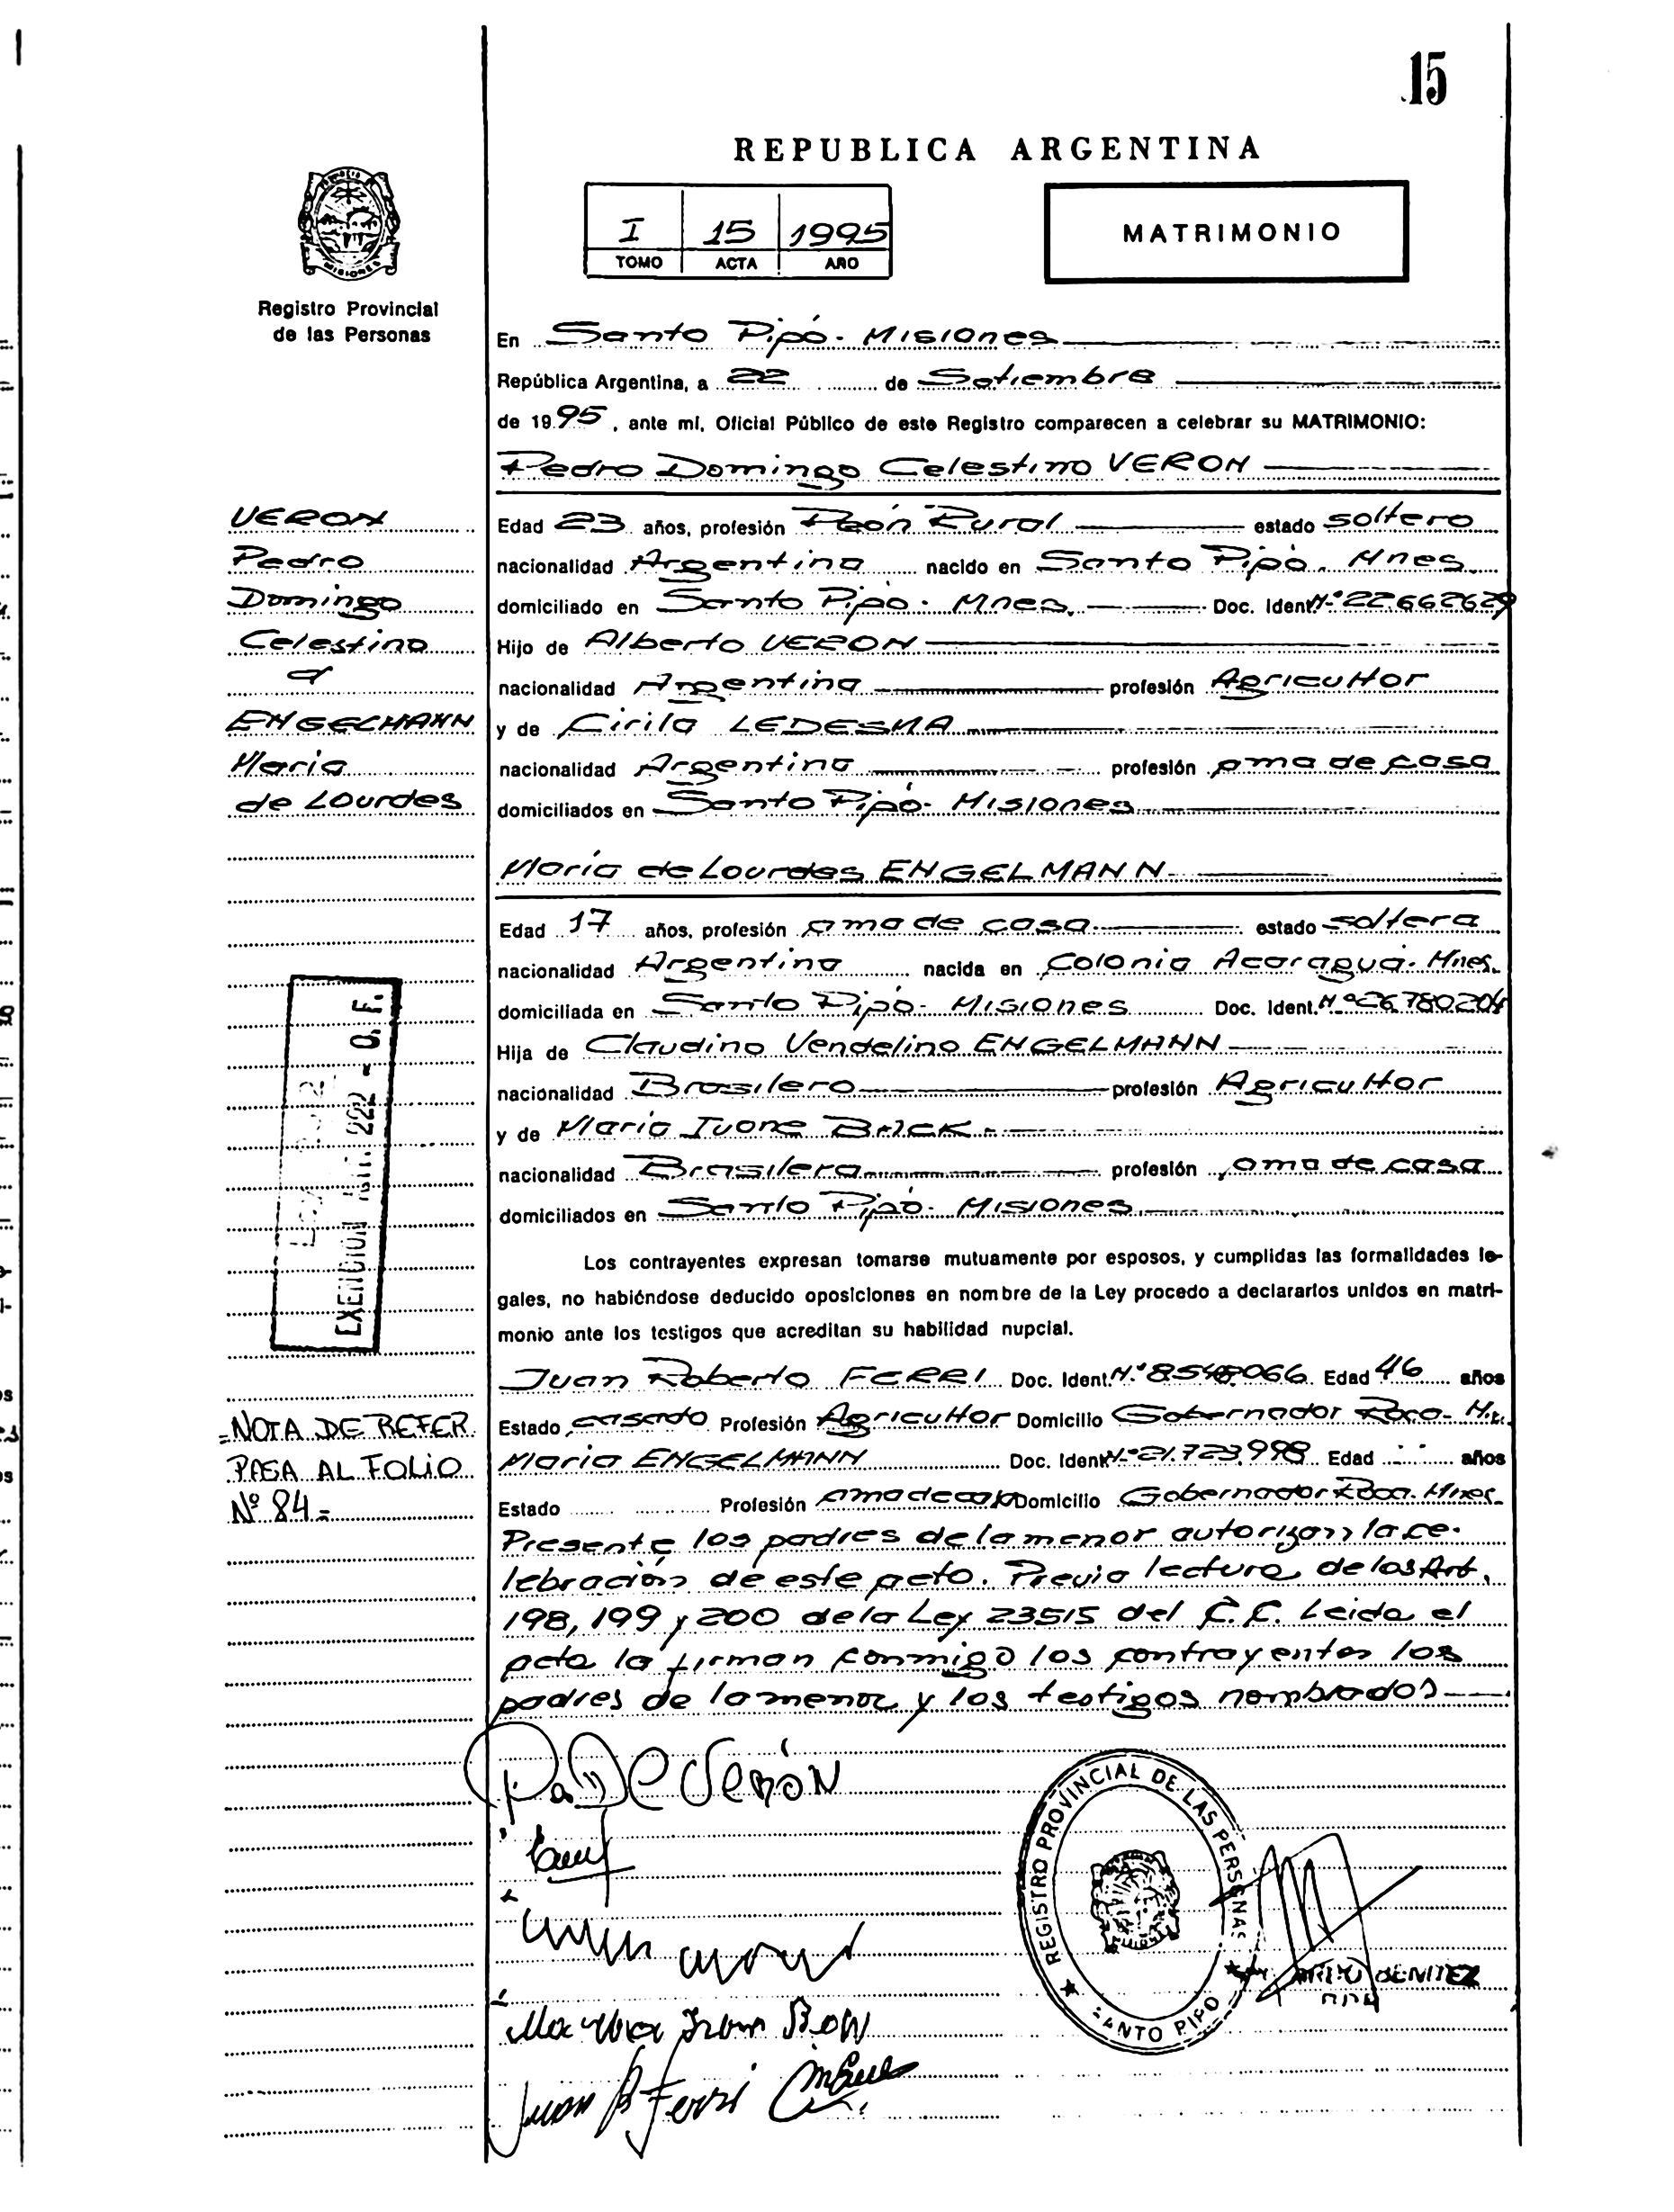 15
REPUBLICA ARGENTINA
I 15 1995
TOMO ACTA AÑO
MATRIMONIO
MISIONES
Registro Provincial
de las Personas
En Santo Pipó - Misiones
República Argentina, a 22 de Setiembre
de 1995, ante mí, Oficial Público de este Registro comparecen a celebrar su MATRIMONIO:
Pedro Domingo Celestino VERON
VERON
Pedro
Domingo
Celestino
ENGELMANN
Maria
de Lourdes
Edad 23 años, profesión Peón Rural estado soltero
nacionalidad Argentina nacido en Santo Pipó. Mnes.
domiciliado en Santo Pipó. Mnes. Doc. Ident. Nº 22.662629
Hijo de Alberto VERON
nacionalidad Argentina profesión Agricultor
y de Cirila LEDESMA
nacionalidad Argentina profesión ama de casa
domiciliados en Santo Pipó - Misiones
María de Lourdes ENGELMANN
Edad 17 años, profesión ama de casa. estado soltera
nacionalidad Argentina nacida en Colonia Acaragua. Mnes.
domiciliada en Santo Pipó - Misiones Doc. Ident. Nº 26780204
Hija de Claudino Vendelino ENGELMANN
nacionalidad Brasilero profesión Agricultor
y de Maria Ivone
nacionalidad Brasilera profesión ama de casa
domiciliados en Santo Pipó. Misiones
EXENCION 222 - O. F.
Los contrayentes expresan tomarse mutuamente por esposos, y cumplidas las formalidades le-
gales, no habiéndose deducido oposiciones en nombre de la Ley procedo a declararlos unidos en matri-
monio ante los testigos que acreditan su habilidad nupcial.
Juan Roberto FERRI Doc. Ident. Nº 8548066 Edad 46 años
Estado casado Profesión Agricultor Domicilio Gobernador Roca -
Maria ENGELMANN Doc. Ident. Nº 21.723.998 Edad años
Estado Profesión ama de casa Domicilio Gobernador Roca. Mnes.
NOTA DE REFER.
PASA AL FOLIO
Nº 84 =
Presente los padres de la menor autorizan la ce-
lebración de este acto. Previa lectura de los Art.
198, 199 y 200 de la Ley 23515 del C.C. Leida el
acta la firman conmigo los contrayentes los
padres de la menor y los testigos nombrados
P. D C Verón
Juan R Ferri
REGISTRO PROVINCIAL DE LAS PERSONAS
SANTO PIPO
BENITEZ